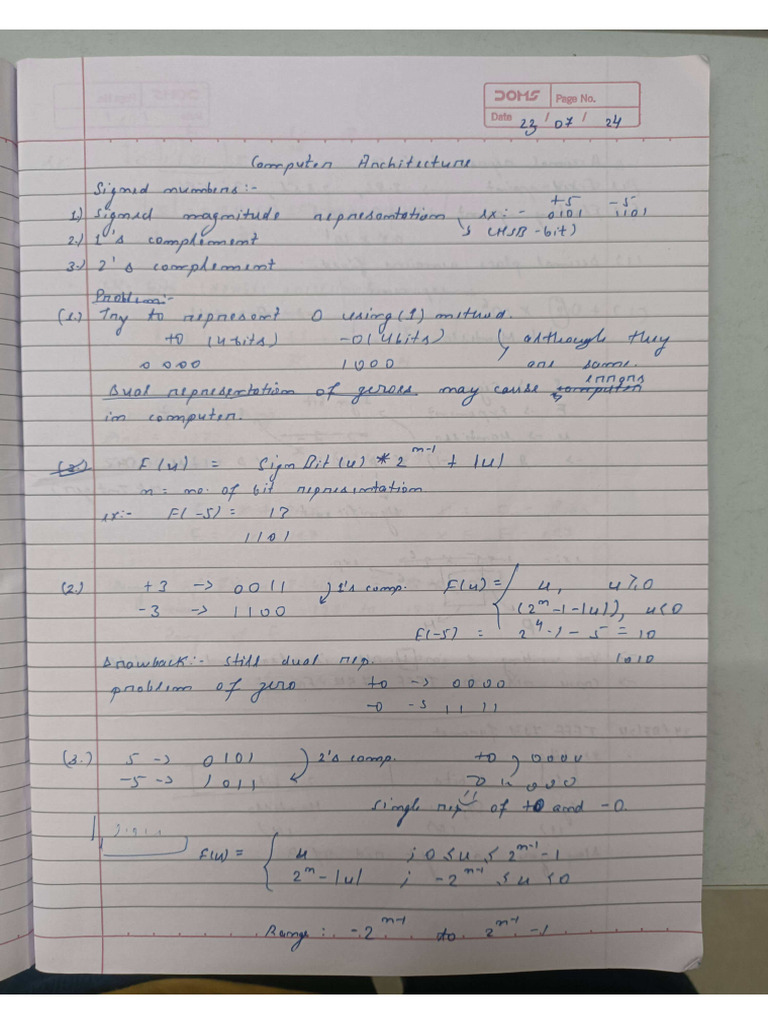 DOMS Page No.
Date 23 / 07 / 24
Computer Architecture
Signed numbers:-
1) Signed magnitude representation ex:- +5 0101 -5 1101
(MSB-bit)
2.) 1's complement
3.) 2's complement
Problem:-
(1.) Try to represent 0 using (1) method.
+0 (4 bits) -0 (4 bits) although they
0000 1000 are same.
Dual representation of zeroes may cause errors
in computer.
F(u) = Sign Bit (u) * 2^m-1 + |u|
n = no. of bit representation
ex:- F(-5) = 13
1101
(2.) +3 -> 0011 1's comp. F(u) = { u, u ≥ 0
-3 -> 1100 (2^m-1-|u|), u<0
F(-5) = 2^4-1-5 = 10
Drawback:- still dual rep. 1010
problem of zero +0 -> 0000
-0 -> 1111
(3.) 5 -> 0101 2's comp. +0 0000
-5 -> 1011
Single rep of +0 and -0.
F(u) = { u ; 0 ≤ u ≤ 2^m-1 -1
2^m - |u| ; -2^m-1 ≤ u < 0
Range: -2^m-1 to 2^m-1 -1